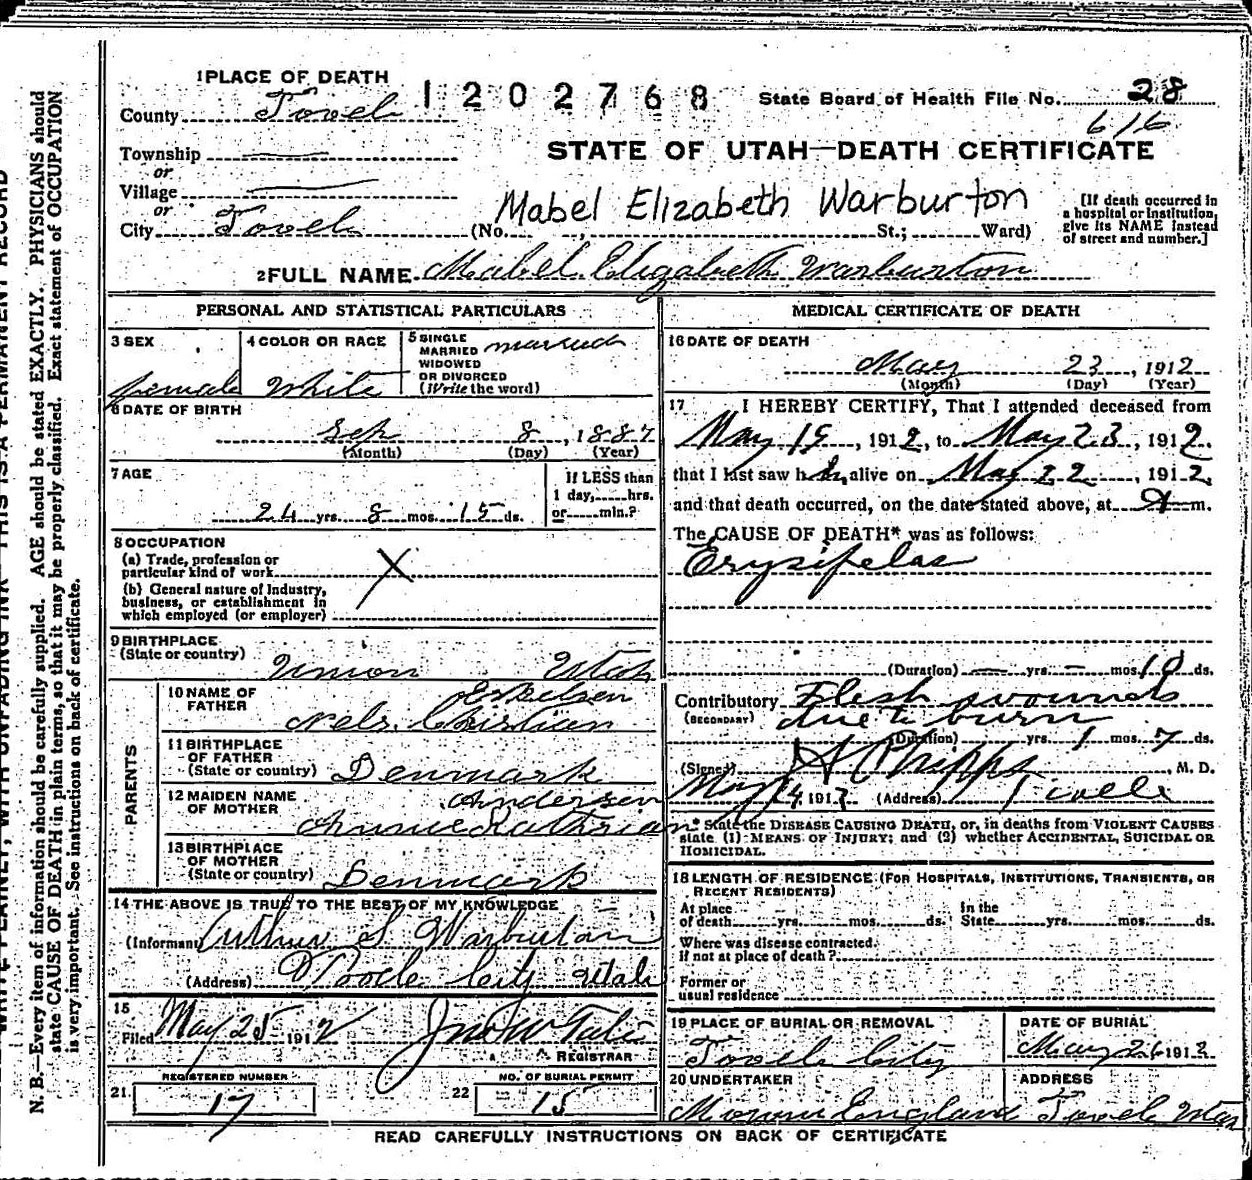 WRITE PLAINLY, WITH UNFADING INK—THIS IS A PERMANENT RECORD
N. B.—Every item of information should be carefully supplied. AGE should be stated EXACTLY. PHYSICIANS should
state CAUSE OF DEATH in plain terms, so that it may be properly classified. Exact statement of OCCUPATION
is very important. See instructions on back of certificate.
1 PLACE OF DEATH
1202768
State Board of Health File No. 28
616
County Tooele
STATE OF UTAH—DEATH CERTIFICATE
Township
or
Village
or
City Tooele
Mabel Elizabeth Warburton
(No. , St.; Ward)
[If death occurred in
a hospital or institution,
give its NAME instead
of street and number.]
2 FULL NAME Mabel Elizabeth Warburton
PERSONAL AND STATISTICAL PARTICULARS
3 SEX
female
4 COLOR OR RACE
White
5 SINGLE
MARRIED
WIDOWED
OR DIVORCED
(Write the word)
married
6 DATE OF BIRTH
Sep 8, 1887
(Month) (Day) (Year)
7 AGE
24 yrs. 8 mos. 15 ds.
If LESS than
1 day, hrs.
or min.?
8 OCCUPATION
(a) Trade, profession or
particular kind of work X
(b) General nature of Industry,
business, or establishment in
which employed (or employer)
9 BIRTHPLACE
(State or country) Union Utah
PARENTS
10 NAME OF
FATHER
Nels Christian
11 BIRTHPLACE
OF FATHER
(State or country) Denmark
12 MAIDEN NAME
OF MOTHER
Andersen
Annie
13 BIRTHPLACE
OF MOTHER
(State or country) Denmark
14 THE ABOVE IS TRUE TO THE BEST OF MY KNOWLEDGE
(Informant) Arthur S Warburton
(Address) Tooele City Utah
15
Filed May 25 1912
REGISTRAR
REGISTERED NUMBER
21. 17
NO. OF BURIAL PERMIT
22 15
MEDICAL CERTIFICATE OF DEATH
16 DATE OF DEATH
May 23, 1912
(Month) (Day) (Year)
17 I HEREBY CERTIFY, That I attended deceased from
May 15, 1912, to May 23, 1912.
that I last saw her alive on May 22, 1912,
and that death occurred, on the date stated above, at m.
The CAUSE OF DEATH* was as follows:
Erysipelas
(Duration) — yrs. — mos. 10 ds.
Contributory Flesh wounds
(SECONDARY) due to burn
(Duration) yrs. 1 mos. 7 ds.
(Signed) Phipps, M. D.
May 24, 1912 (Address) Tooele
* State the DISEASE CAUSING DEATH, or, in deaths from VIOLENT CAUSES
state (1) MEANS OF INJURY; and (2) whether ACCIDENTAL, SUICIDAL OR
HOMICIDAL.
18 LENGTH OF RESIDENCE (FOR HOSPITALS, INSTITUTIONS, TRANSIENTS, OR
RECENT RESIDENTS)
At place
of death yrs. mos. ds.
In the
State yrs. mos. ds.
Where was disease contracted.
If not at place of death?
Former or
usual residence
19 PLACE OF BURIAL OR REMOVAL
Tooele City
DATE OF BURIAL
May 26 1912
20 UNDERTAKER
England
ADDRESS
Tooele Utah
READ CAREFULLY INSTRUCTIONS ON BACK OF CERTIFICATE